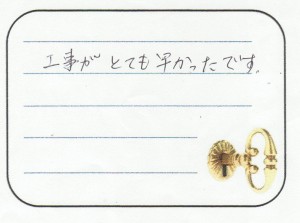 工事が とても 早かったです。